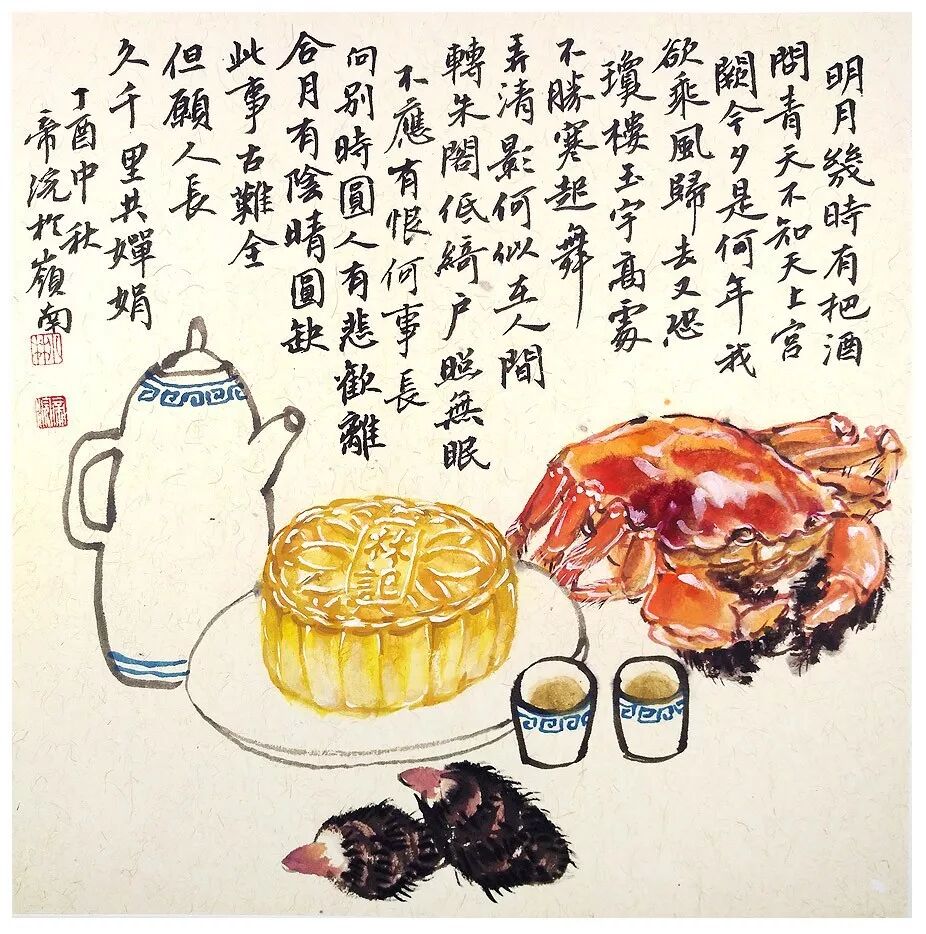 明月幾時有把酒
問青天不知天上宮
闕今夕是何年我
欲乘風歸去又恐
瓊樓玉宇高處
不勝寒起舞
弄清影何似在人間
轉朱閣低綺戶照無眠
不應有恨何事長
向別時圓人有悲歡離
合月有陰晴圓缺
此事古難全
但願人長
久千里共嬋娟
丁酉中秋
帝浣於嶺南
林記